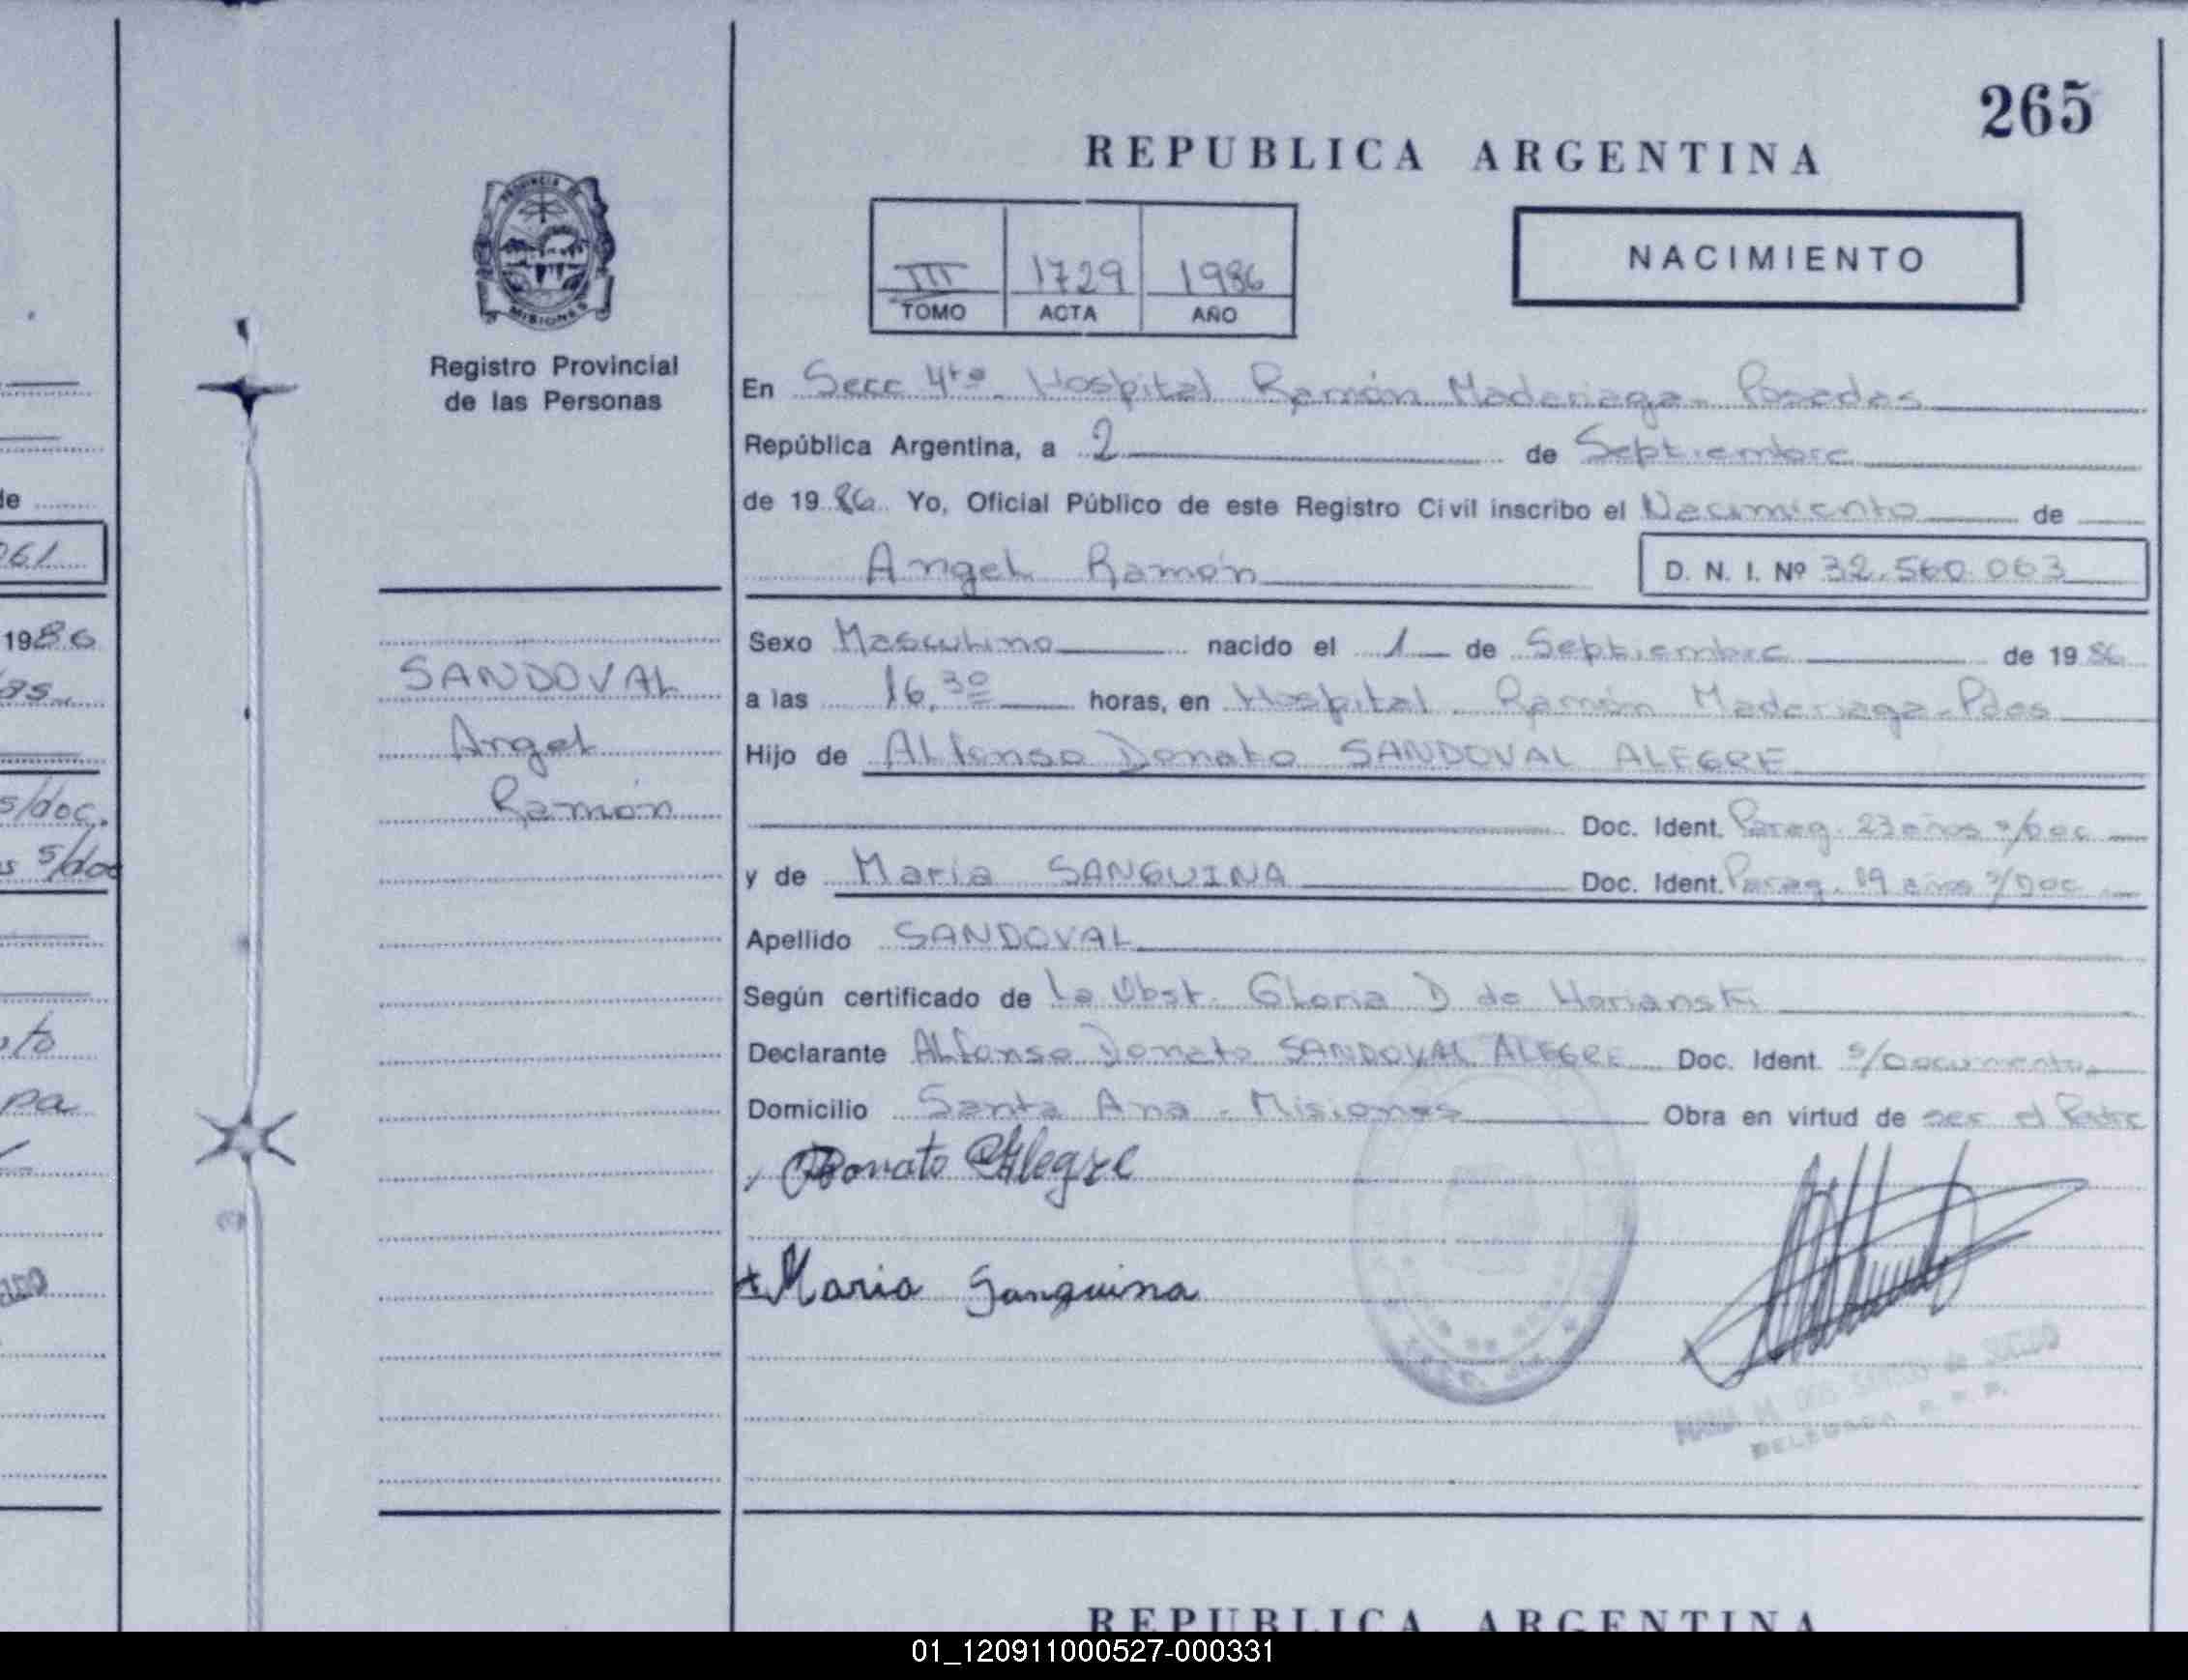 265
REPUBLICA ARGENTINA
PROVINCIA DE
MISIONES
Registro Provincial
de las Personas
III 1729 1986
TOMO ACTA AÑO
NACIMIENTO
En Secc 4ta - Hospital Ramón Madariaga - Posadas
República Argentina, a 2 de Septiembre
de 1986. Yo, Oficial Público de este Registro Civil inscribo el Nacimiento de
Angel Ramón
D. N. I. Nº 32.560.063
SANDOVAL
Angel
Ramón
Sexo Masculino nacido el 1 de Septiembre de 1986
a las 16,30 horas, en Hospital Ramón Madariaga - Pdas
Hijo de Alfonso Donato SANDOVAL ALEGRE
Doc. Ident. Parag. 23 años s/Doc
y de Maria SANGUINA Doc. Ident. Parag. 19 años s/Doc
Apellido SANDOVAL
Según certificado de La Obst. Gloria D de
Declarante Alfonso Donato SANDOVAL ALEGRE Doc. Ident. s/Documento
Domicilio Santa Ana - Misiones Obra en virtud de ser el Padre
Donato Alegre
Maria Sanguina
DELEGADA R. P. P.
de
061
1986
as
s/doc.
s s/doc
to
pa
REPUBLICA ARGENTINA
01_120911000527-000331